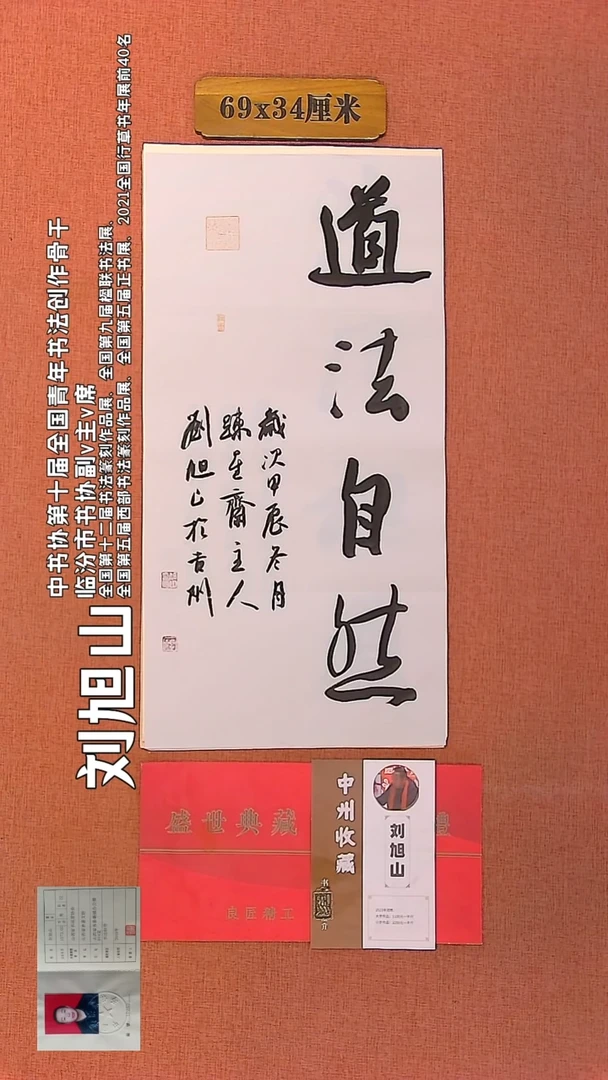 69x34厘米
道法自然
歳次甲辰冬月
竦堂齋主人
劉旭山於吉州
中书协第十届全国青年书法创作骨干
临汾市书协副v主v席
全国第十二届书法篆刻作品展、全国第九届楹联书法展、
全国第五届西部书法篆刻作品展、全国第五届正书展、2021全国行草书年展前40名
刘旭山
盛世典藏
良匠精工
中州收藏
书
介
刘旭山